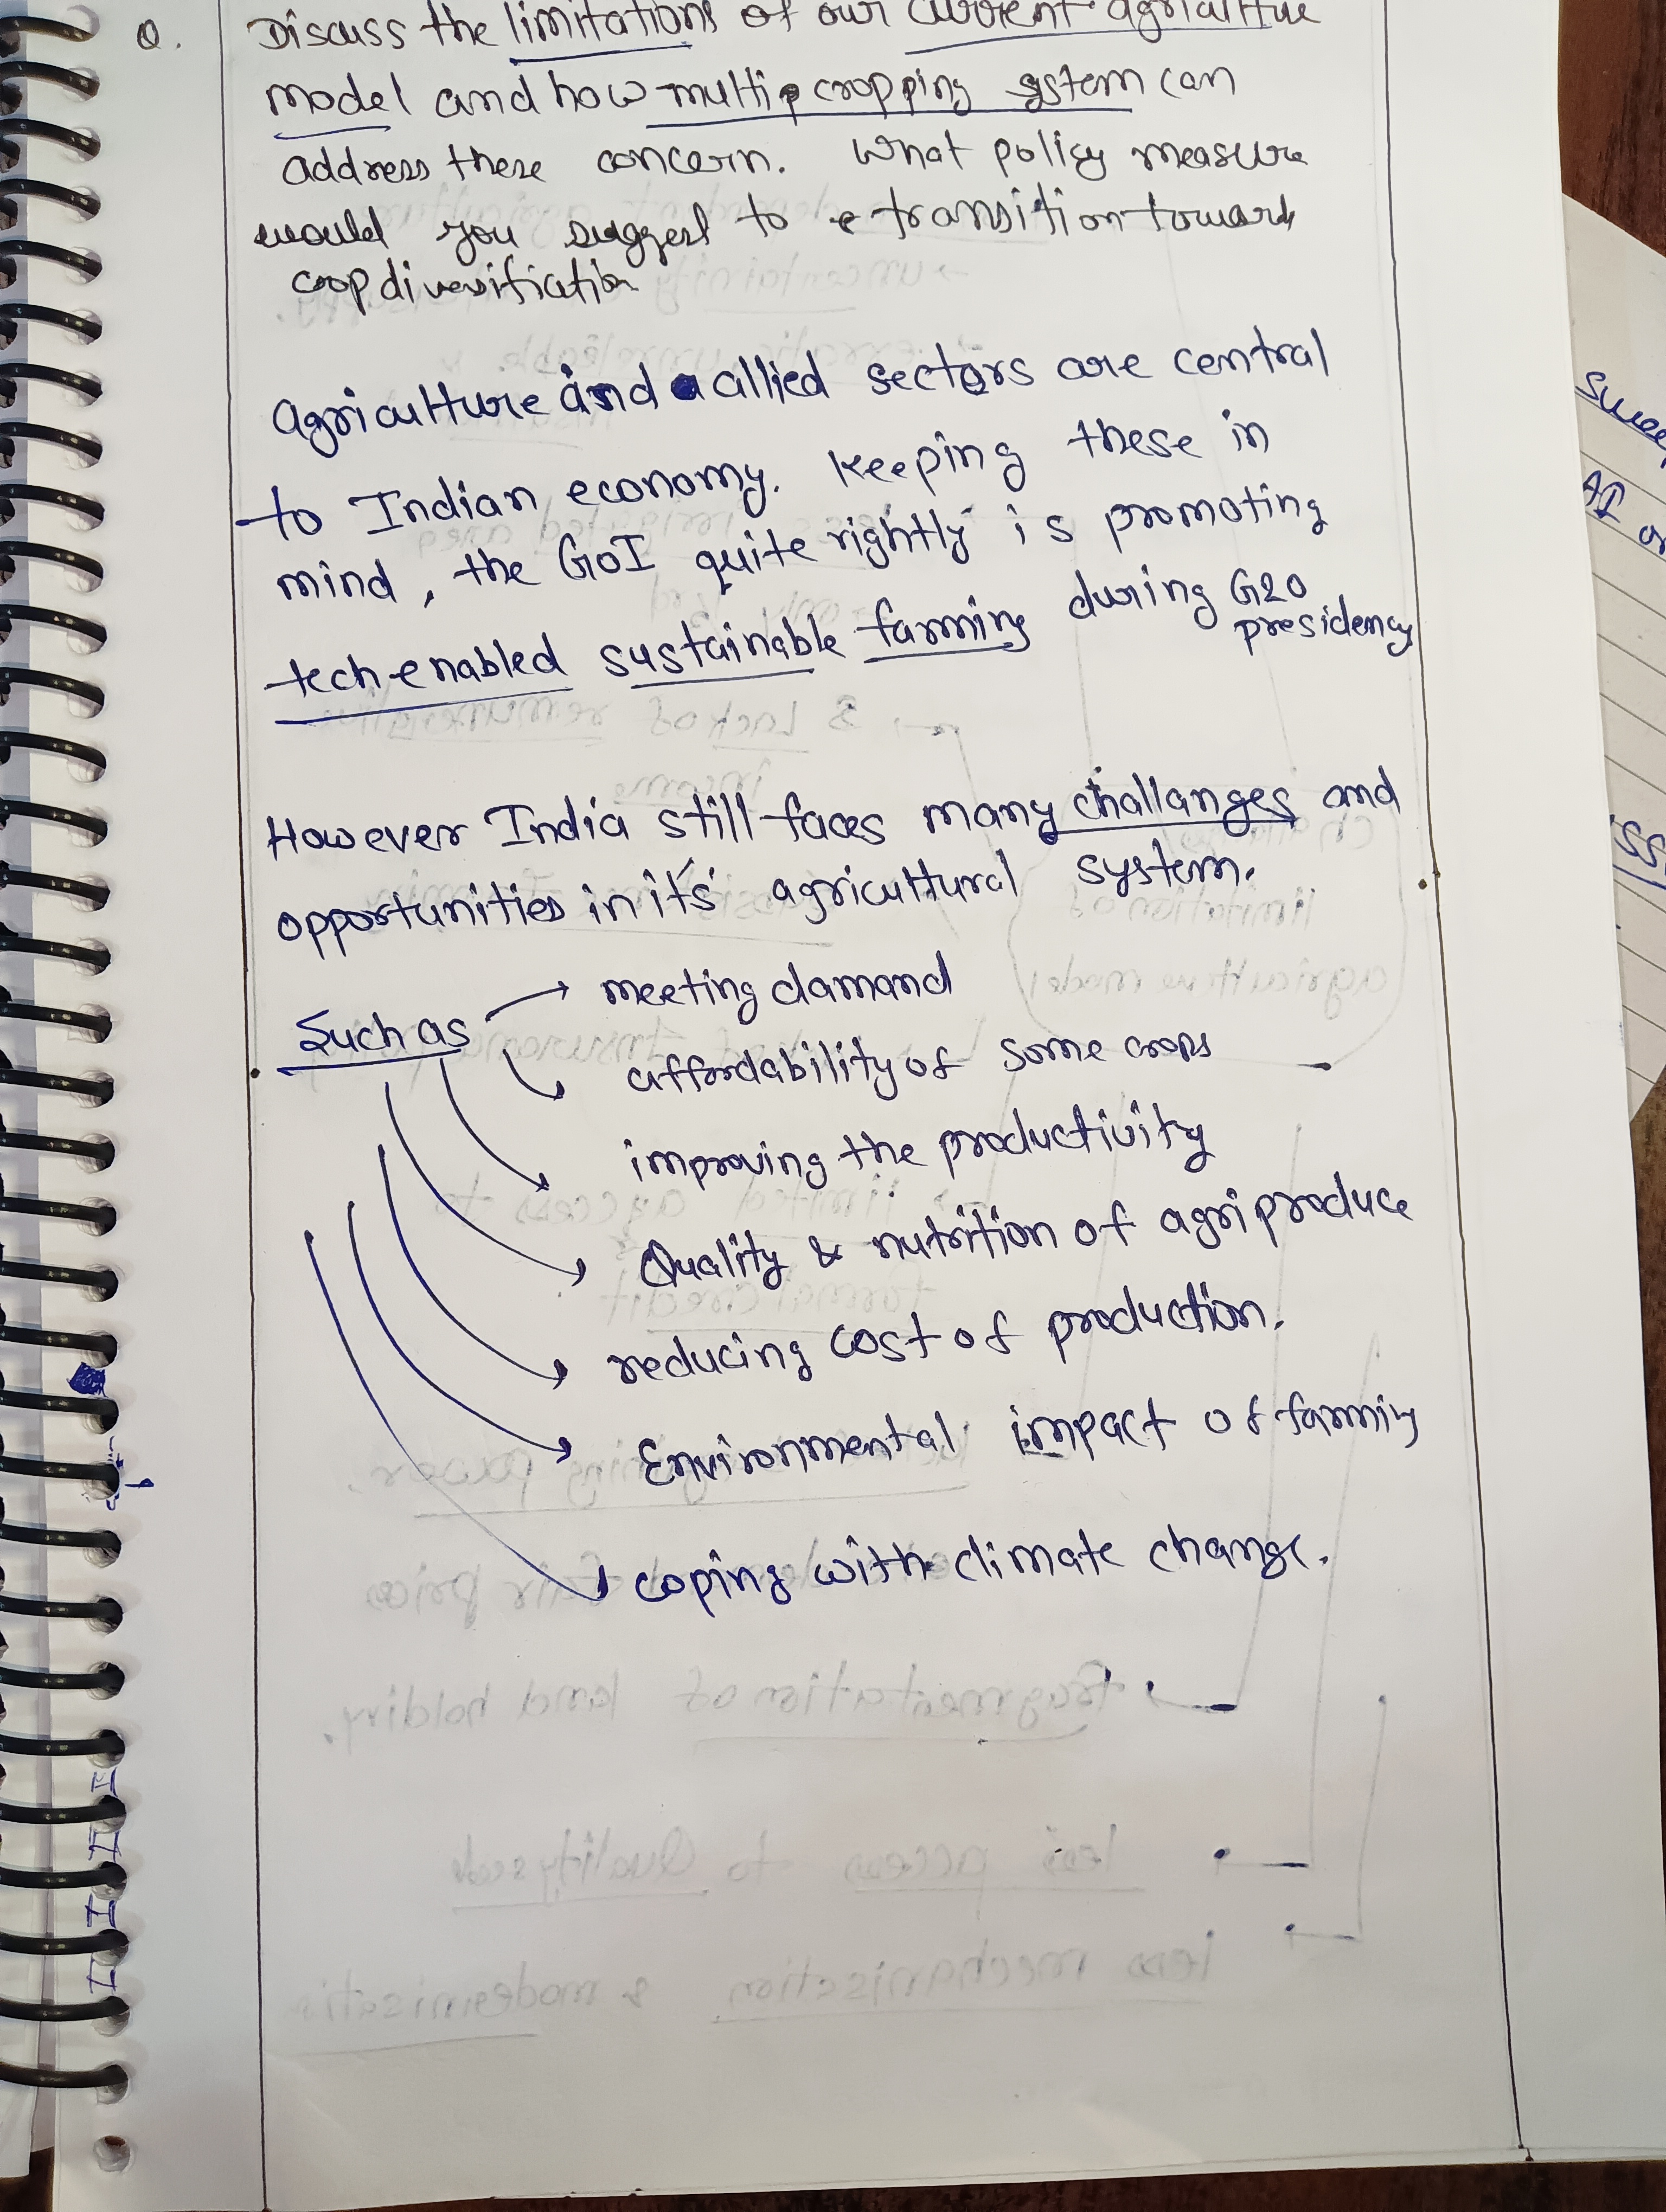 Q. Discuss the limitations of our current agriculture
model and how multip cropping system can
address these concern. What policy measure
would you suggest to e transition toward
crop diversification
Agriculture and allied sectors are central
to Indian economy. Keeping these in
mind, the GoI quite rightly is promoting
tech enabled sustainable farming during G20
presidency
However India still faces many challanges and
opportunities in it's agricultural system.
Such as → meeting damand
affordability of some crops
improving the productivity
Quality & nutrition of agri produce
reducing cost of production.
Environmental impact of farming
coping with climate change.
AI